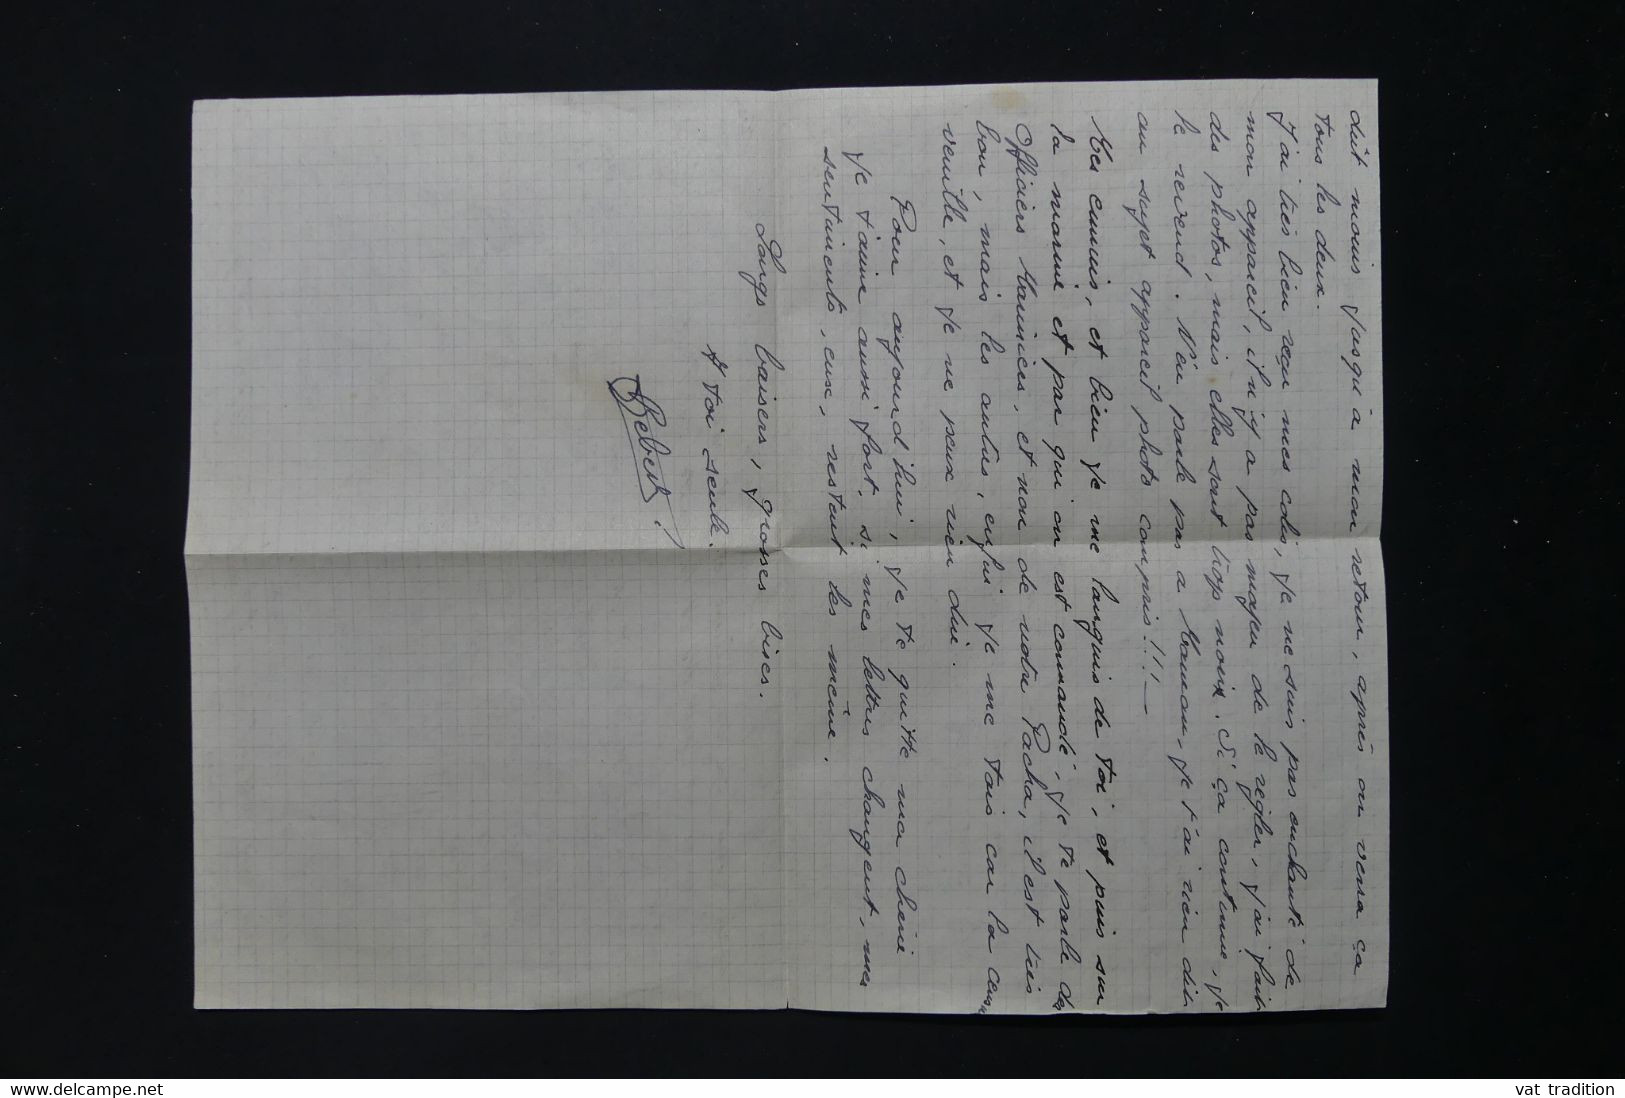 dit mois jusqu'à mon retour, après on verra ça
tous les deux.
J'ai très bien reçu mes colis, je ne suis pas enchanté de
mon appareil, il n'y a pas moyen de le régler, j'ai fait
des photos, mais elles sont trop noires. Si ça continue, je
le revend. N'en parle pas a Maman, je t'ai rien dit
au sujet appareil photo compris!!! —
Mes ennuis, et bien je me languis de toi, et puis sur
la marine et par qui on est commandé, je te parle des
Officiers Mariniers, et non de notre Pacha, il est très
bon, mais les autres, enfin je me tais car la censure
veille, et je ne peux rien dire.
Pour aujourd'hui, je te quitte ma chérie
Je t'aime aussi fort, si mes lettres changent, mes
sentiments, eux, restent les même.
Longs baisers, grosses bises.
A toi seule.
Bebert.
www.delcampe.net
vat tradition